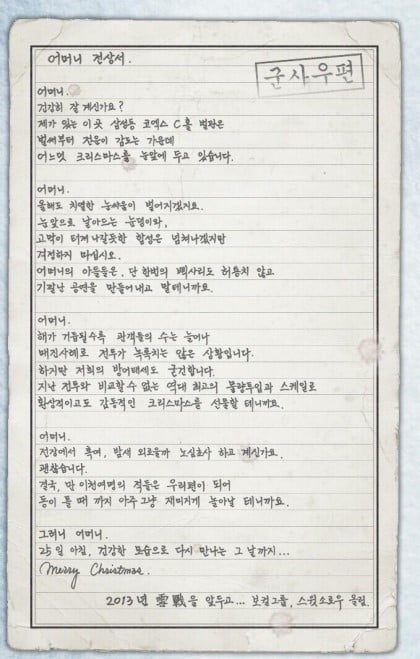 어머니 전상서.
군사우편
어머니.
건강히 잘 계신가요?
제가 있는 이곳 삼성동 코엑스 C홀 벌판은
벌써부터 전운이 감도는 가운데
어느덧 크리스마스를 눈앞에 두고 있습니다.
어머니.
올해도 치열한 눈싸움이 벌어지겠지요.
눈앞으로 날아드는 눈덩이와,
고막이 터져 나갈듯한 함성은 넘쳐나겠지만
걱정하지 마십시오.
어머니의 아들들은, 단 한명의 백사리도 허용치 않고
기필난 공연을 만들어내고 말테니까요.
어머니.
해가 거듭될수록 관객들의 수는 늘어나
매진사례로 전투가 녹록치는 않은 상황입니다.
하지만 저희의 방어태세도 굳건합니다.
지난 전투와 비교할 수 없는 역대 최고의 물량투입과 스케일로
환상적이고도 감동적인 크리스마스를 선물할 테니까요.
어머니.
전장에서 혹여, 밤새 외로울까 노심초사 하고 계신가요.
괜찮습니다.
결국, 만 이천여명의 적들은 우리편이 되어
동이 틀 때 까지 아주 그냥 재미지게 놀아날 테니까요.
그러니 어머니.
25일 아침, 건강한 모습으로 다시 만나는 그 날까지...
Merry Christmas.
2013년 雪戰을 앞두고... 보컬그룹, 스윗소로우 올림.